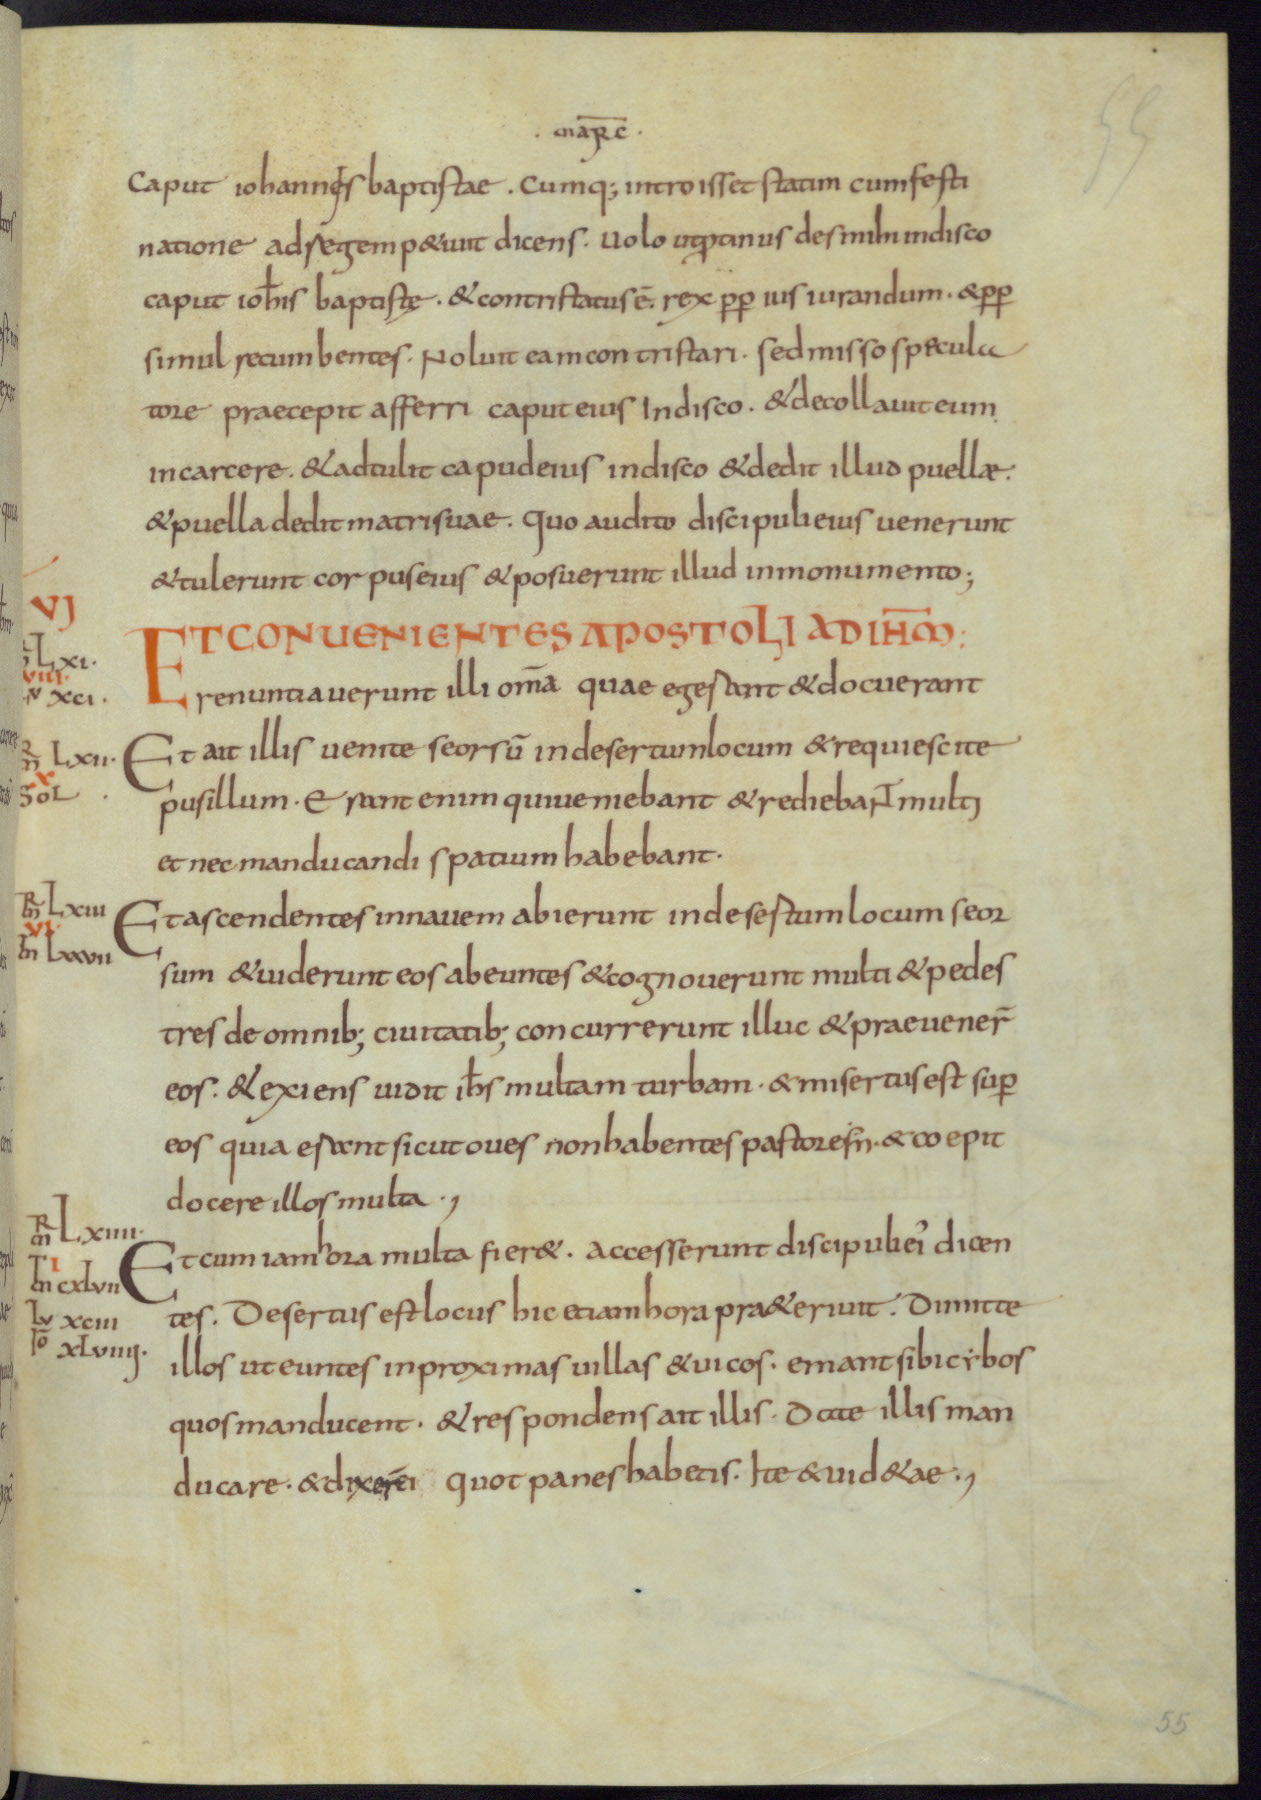 . marc̅ .
55
Caput iohannis baptistae . Cumq; introisset statim cum festi
natione ad regem p&iuit dicens . Uolo ut protinus des mihi in disco
caput ioħis baptistę . & contristatus ē . rex ꝓp ius iurandum . & ꝓp
simul recumbentes . Noluit eam contristari . sed misso specula
tore praecepit afferri caput eius In disco . & decollauit eum
in carcere . & adtulit capud eius in disco & dedit illud puellæ .
& puella dedit matri suae . Quo audito discipuli eius uenerunt
& tulerunt corpus eius & posuerunt illud in monumento ;
VI
ET CONUENIENTES APOSTOLI AD IHM̅ ;
Lxi .
VIII .
xci .
renuntiauerunt illi om̅a quae egerant & docuerant
Lxii .
Et ait illis uenite seorsū in desertum locum & requiescite
X
SOL .
pusillum . Erant enim qui ueniebant & rediebant multi
et nec manducandi spatium habebant .
Lxiii
Et ascendentes in nauem abierunt in desertum locum seor
VI
Lxxvii
sum & uiderunt eos abeuntes & cognouerunt multi & pedes
tres de omnib; ciuitatib; concurrerunt illuc & praeuener̅
eos . & exiens uidit ih̅s multam turbam . & misertus est sup̅
eos quia erant sicut oues non habentes pastorem . & coepit
docere illos multa .,
Lxiiii .
Et cum iam hora multa fier& . Accesserunt discipuli ei᾽ dicen
I
cxLvii
tes . Desertus est locus hic etiam hora pra&eriuit . Dimitte
Lv xciii
Iō xLviiii .
illos ut euntes in proximas uillas & uicos . emant sibi cybos
quos manducent . & respondens ait illis . Date illis man
ducare . & dixer̅ ei quot panes habetis . Ite & uid&ae .,
55